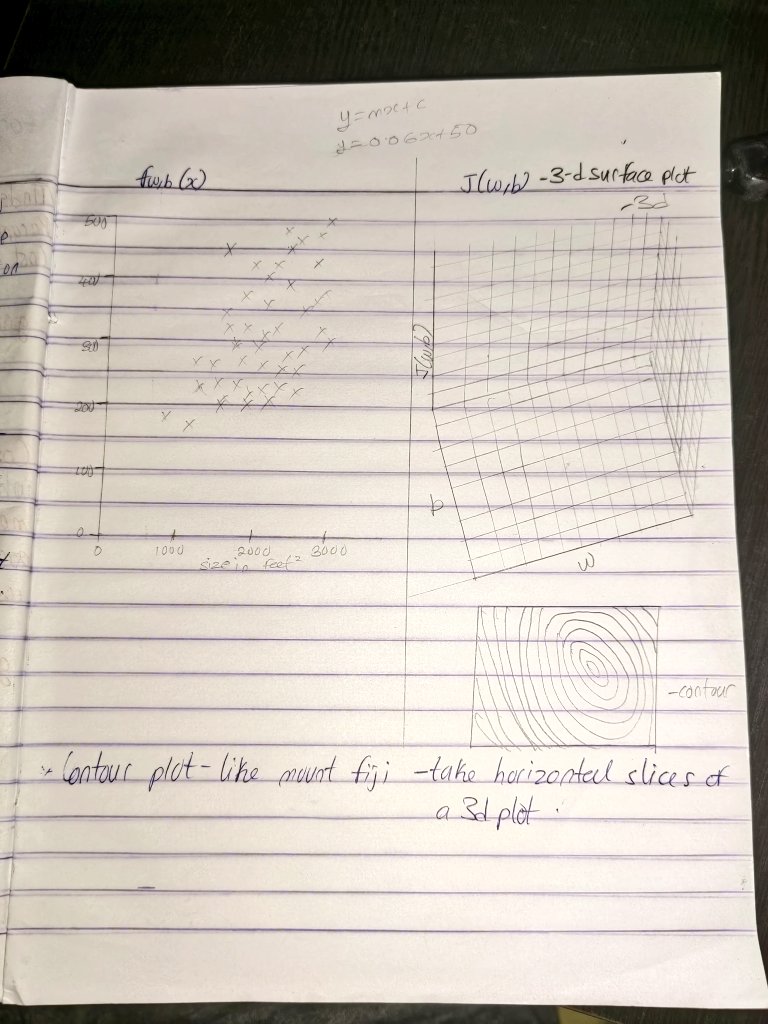 y=mx+c
y=0.06x+50
fw,b (x)
J(w,b) -3-d surface plot
-3d
500
400
300
200
100
0
0 1000 2000 3000
size in feet²
J(w,b)
b
w
-contour
* Contour plot - like mount fiji - take horizontal slices of
a 3d plot.